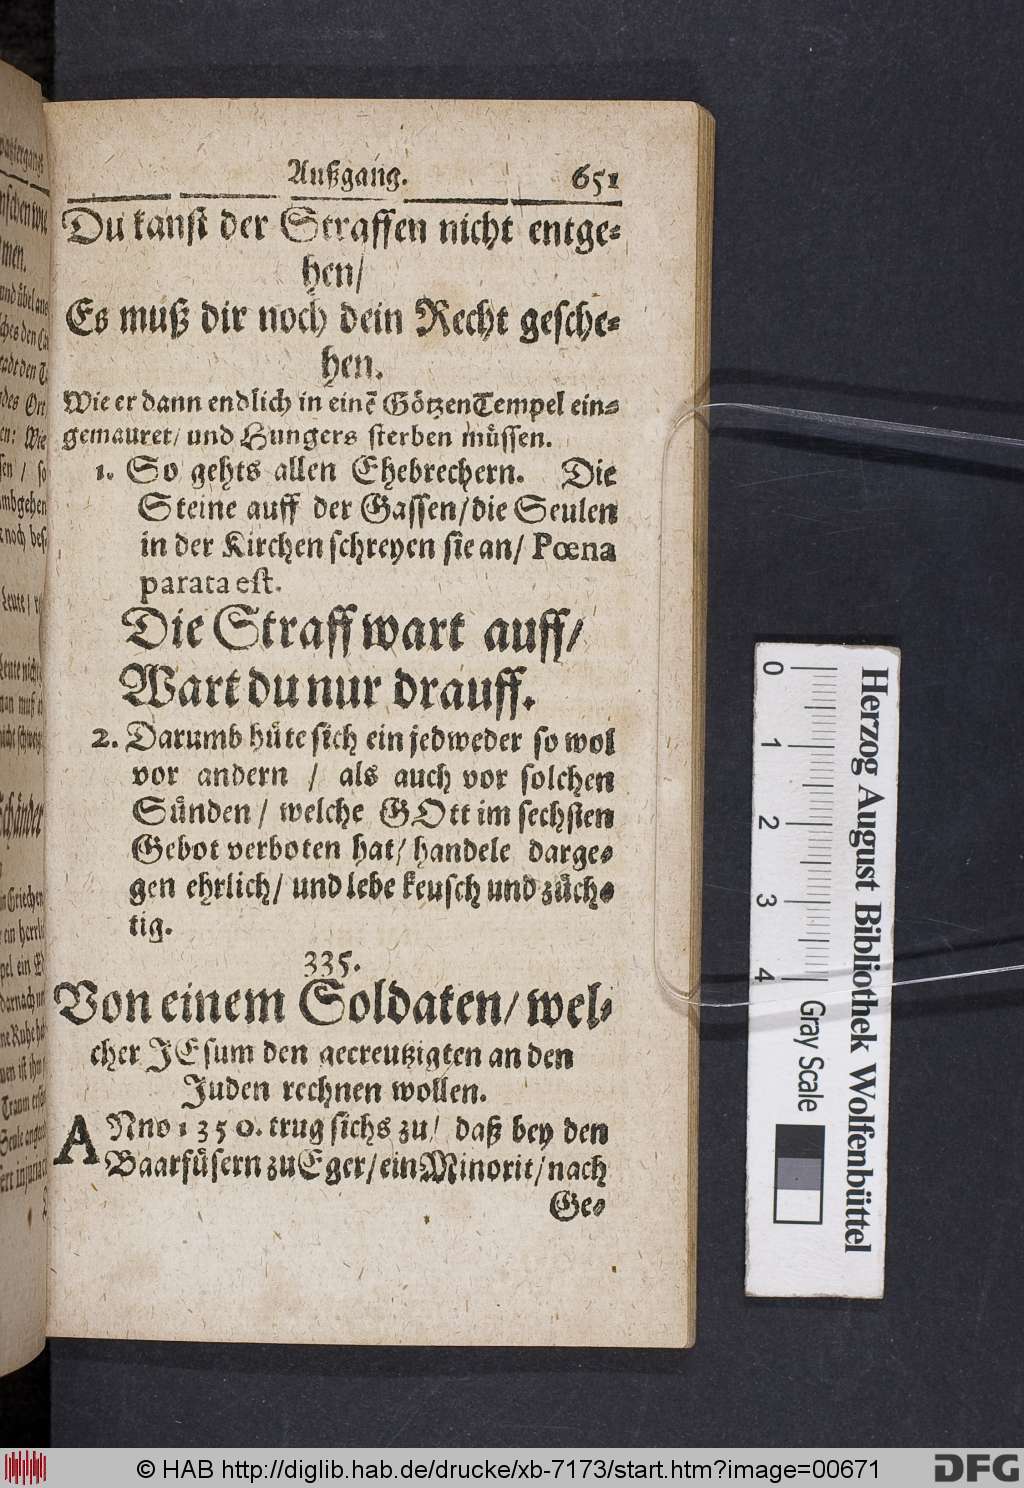 Außgang. 651
Du kanst der Straffen nicht entge-
hen/
Es muß dir noch dein Recht gesche-
hen.
Wie er dann endlich in einẽ GötzenTempel ein-
gemauret/ und Hungers sterben müssen.
1. So gehts allen Ehebrechern. Die
Steine auff der Gassen/die Seulen
in der Kirchen schreyen sie an/ Pœna
parata est.
Die Straff wart auff/
Wart du nur drauff.
2. Darumb hüte sich ein jedweder so wol
vor andern / als auch vor solchen
Sünden/ welche GOtt im sechsten
Gebot verboten hat/ handele darge-
gen ehrlich/ und lebe keusch und züch-
tig.
335.
Von einem Soldaten/ wel-
cher JEsum den gecreutzigten an den
Juden rechnen wollen.
ANno 1350. trug sichs zu/ daß bey den
Baarfüsern zu Eger/ein Minorit/nach
Ge-
0 1 2 3 4
Gray Scale
Herzog August Bibliothek Wolfenbüttel
© HAB http://diglib.hab.de/drucke/xb-7173/start.htm?image=00671
DFG